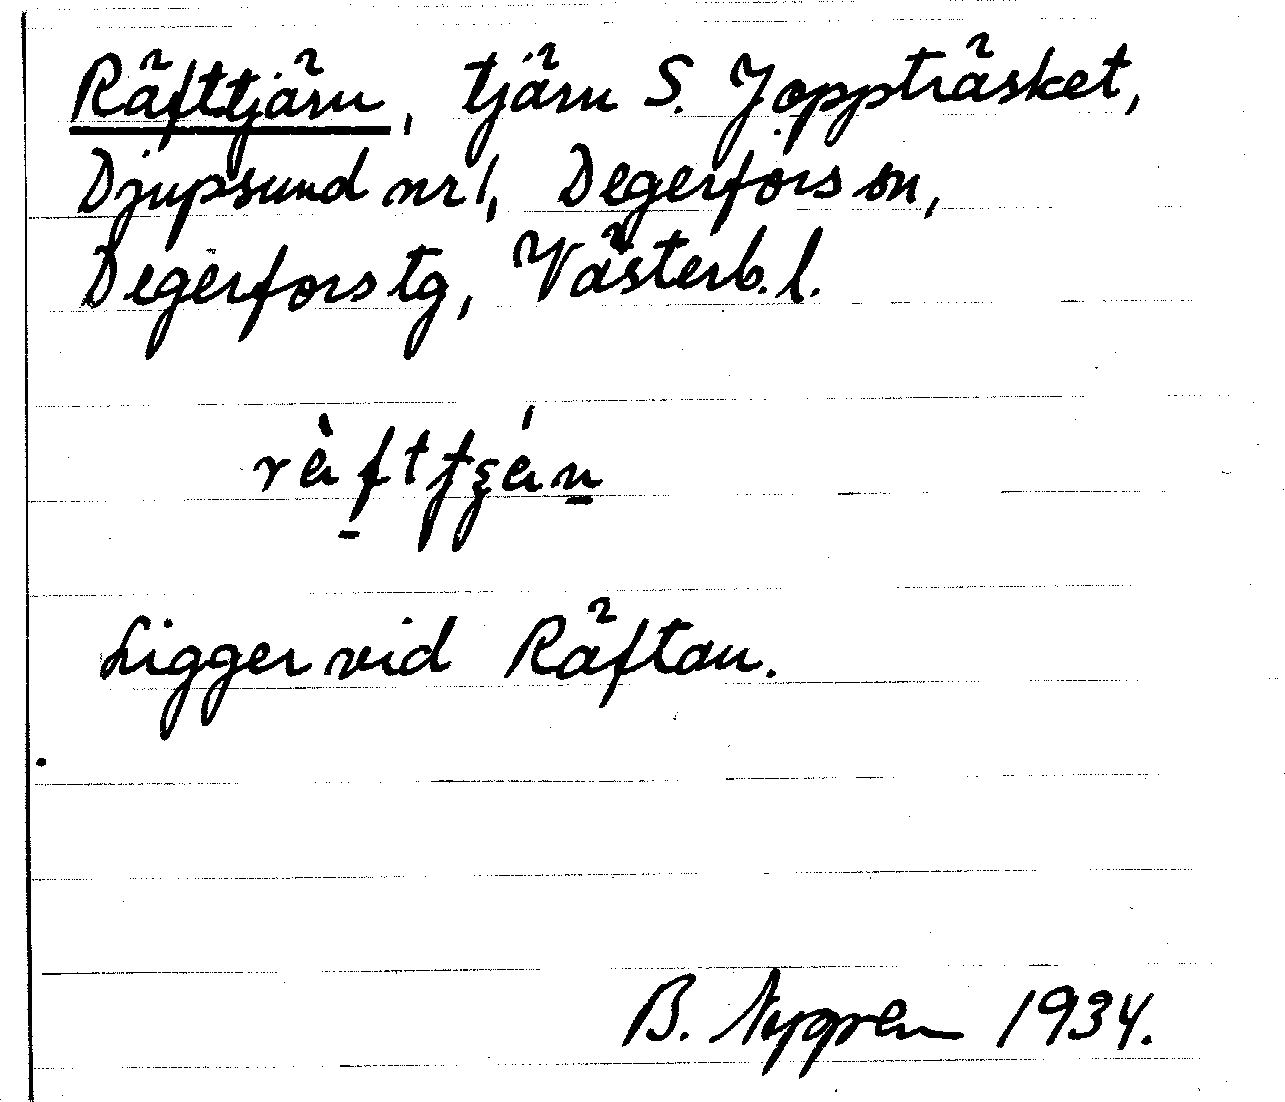 Räfttjärn, tjärn S. Joppträsket,
Djupsund nr 1, Degerfors sn,
Degerfors tg, Västerb. l.
Ligger vid Räftan.
B. Nygren 1934.